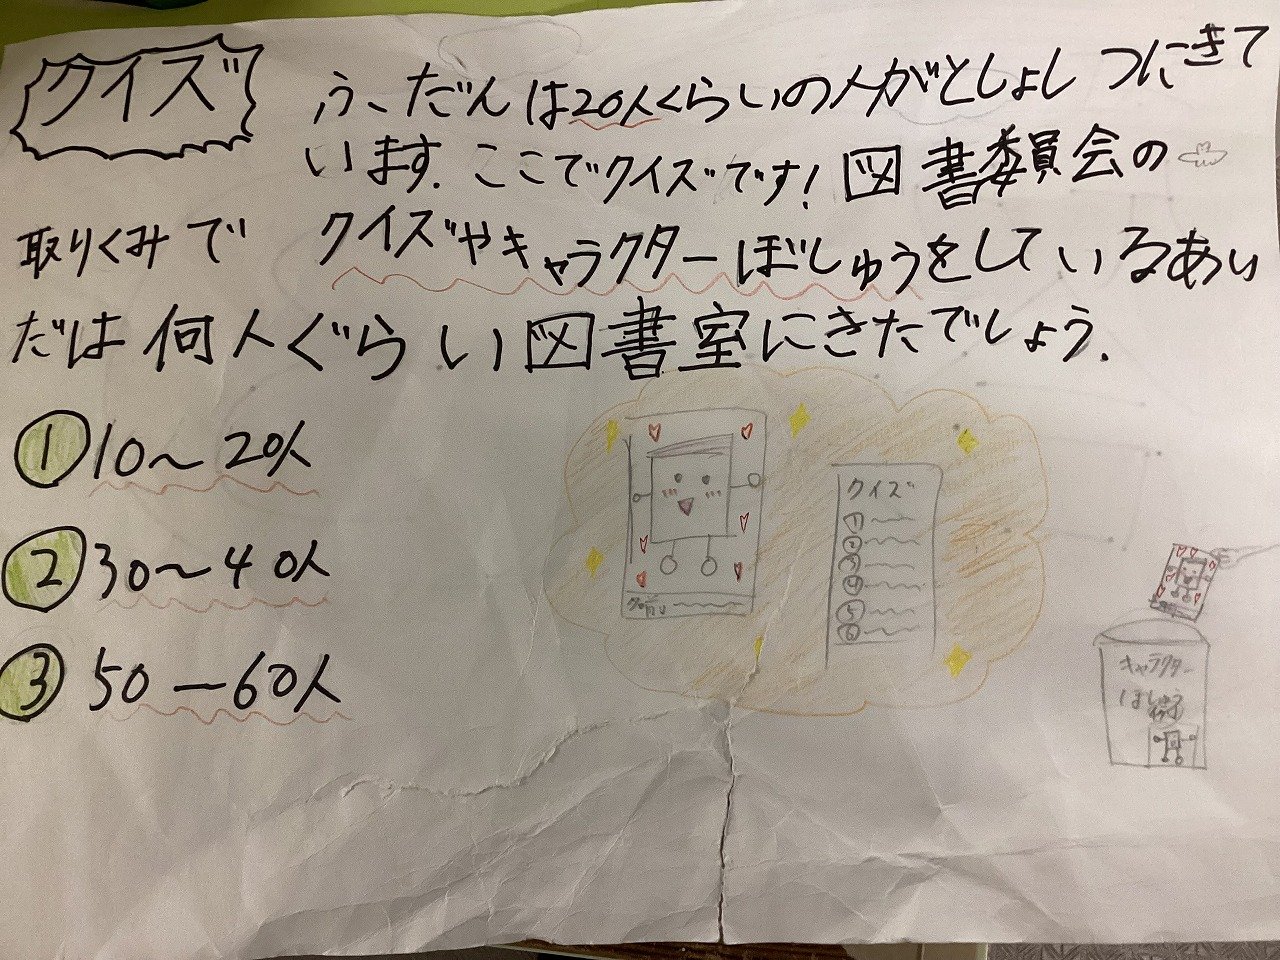 クイズ
ふだんは20人くらいの人がとしょしつにきて
います.ここでクイズです!図書委員会の
取りくみで クイズやキャラクターぼしゅうをしているあい
だは何人ぐらい図書室にきたでしょう.
① 10〜20人
② 30〜40人
③ 50〜60人
クイズ
①
②
③
④
⑤
⑥
名前
キャラクター
ぼしゅう